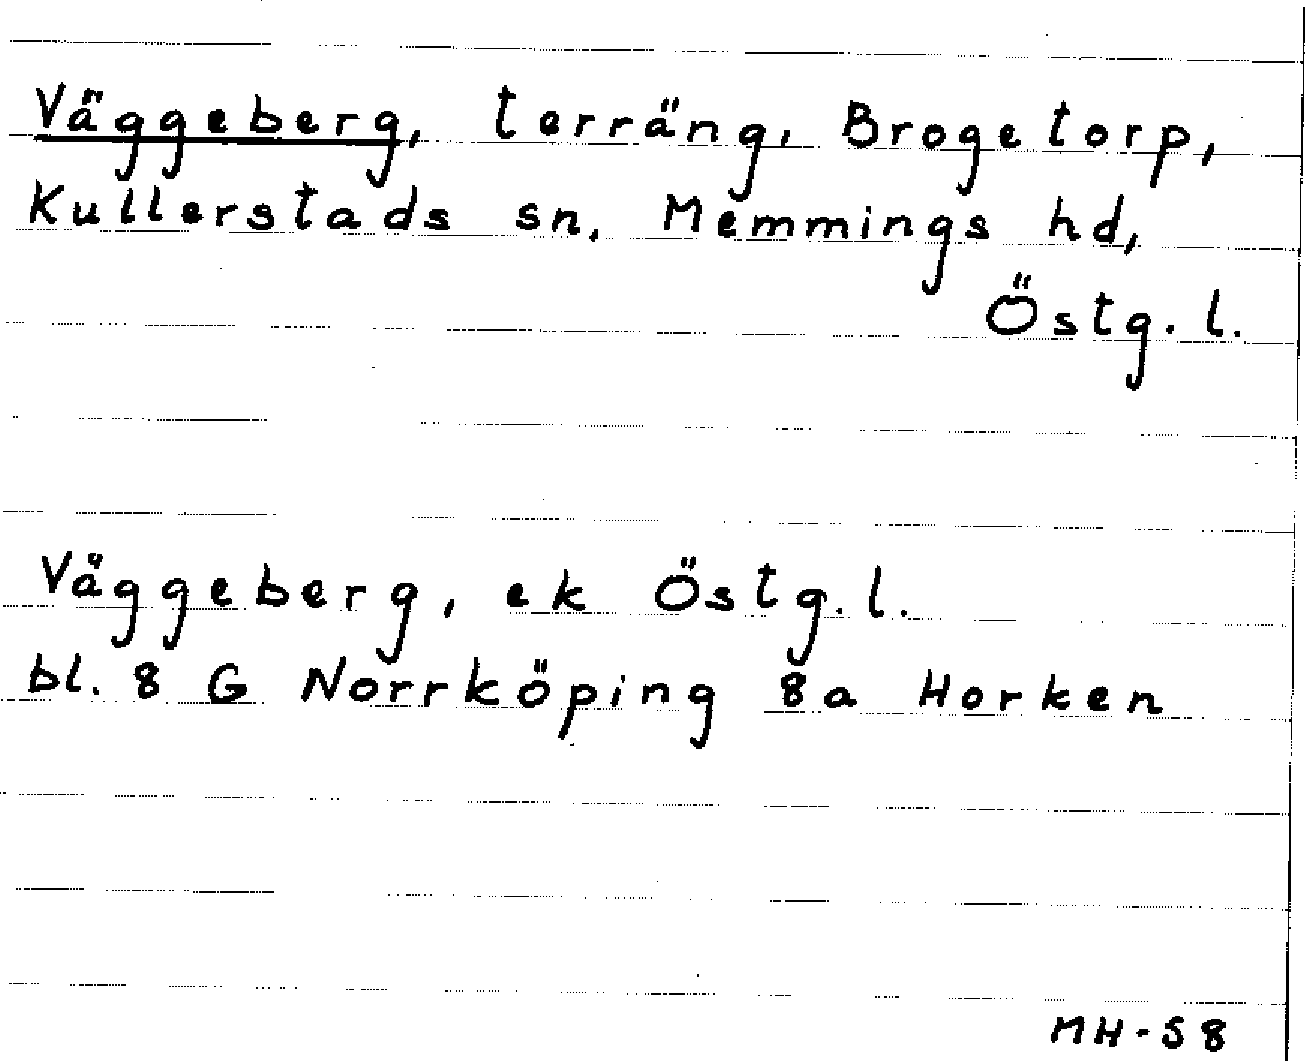 Väggeberg, terräng, Brogetorp,
Kullerstads sn, Memmings hd,
Östg. l.
Väggeberg, ek Östg. l.
bl. 8 G Norrköping 8a Horken
MH-58